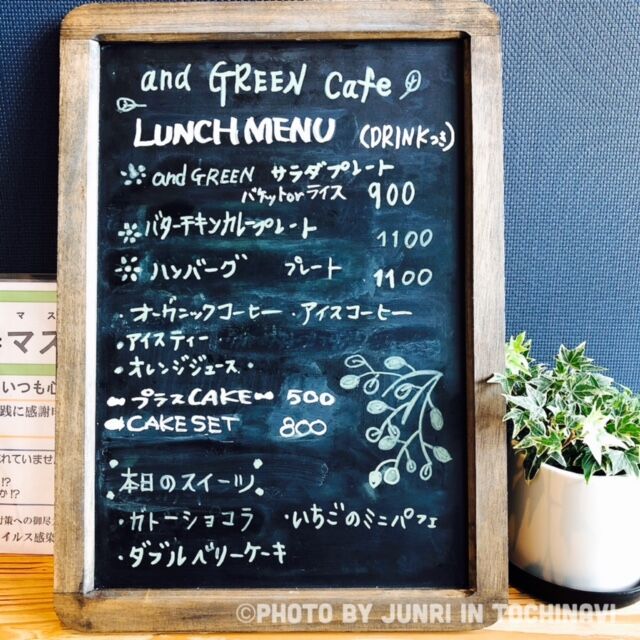 and GREEN cafe
LUNCH MENU (DRINKつき)
and GREEN サラダプレート
バケットorライス 900
バターチキンカレープレート 1100
ハンバーグ プレート 1100
・オーガニックコーヒー ・アイスコーヒー
・アイスティー
・オレンジジュース・
プラスCAKE 500
CAKE SET 800
本日のスイーツ
・ガトーショコラ ・いちごのミニパフェ
・ダブルベリーケーキ
マス
マス
いつも心
践に感謝
れていません
!?
か!?
対策への御尽
イルス感染
©PHOTO BY JUNRI IN TOCHINAVI